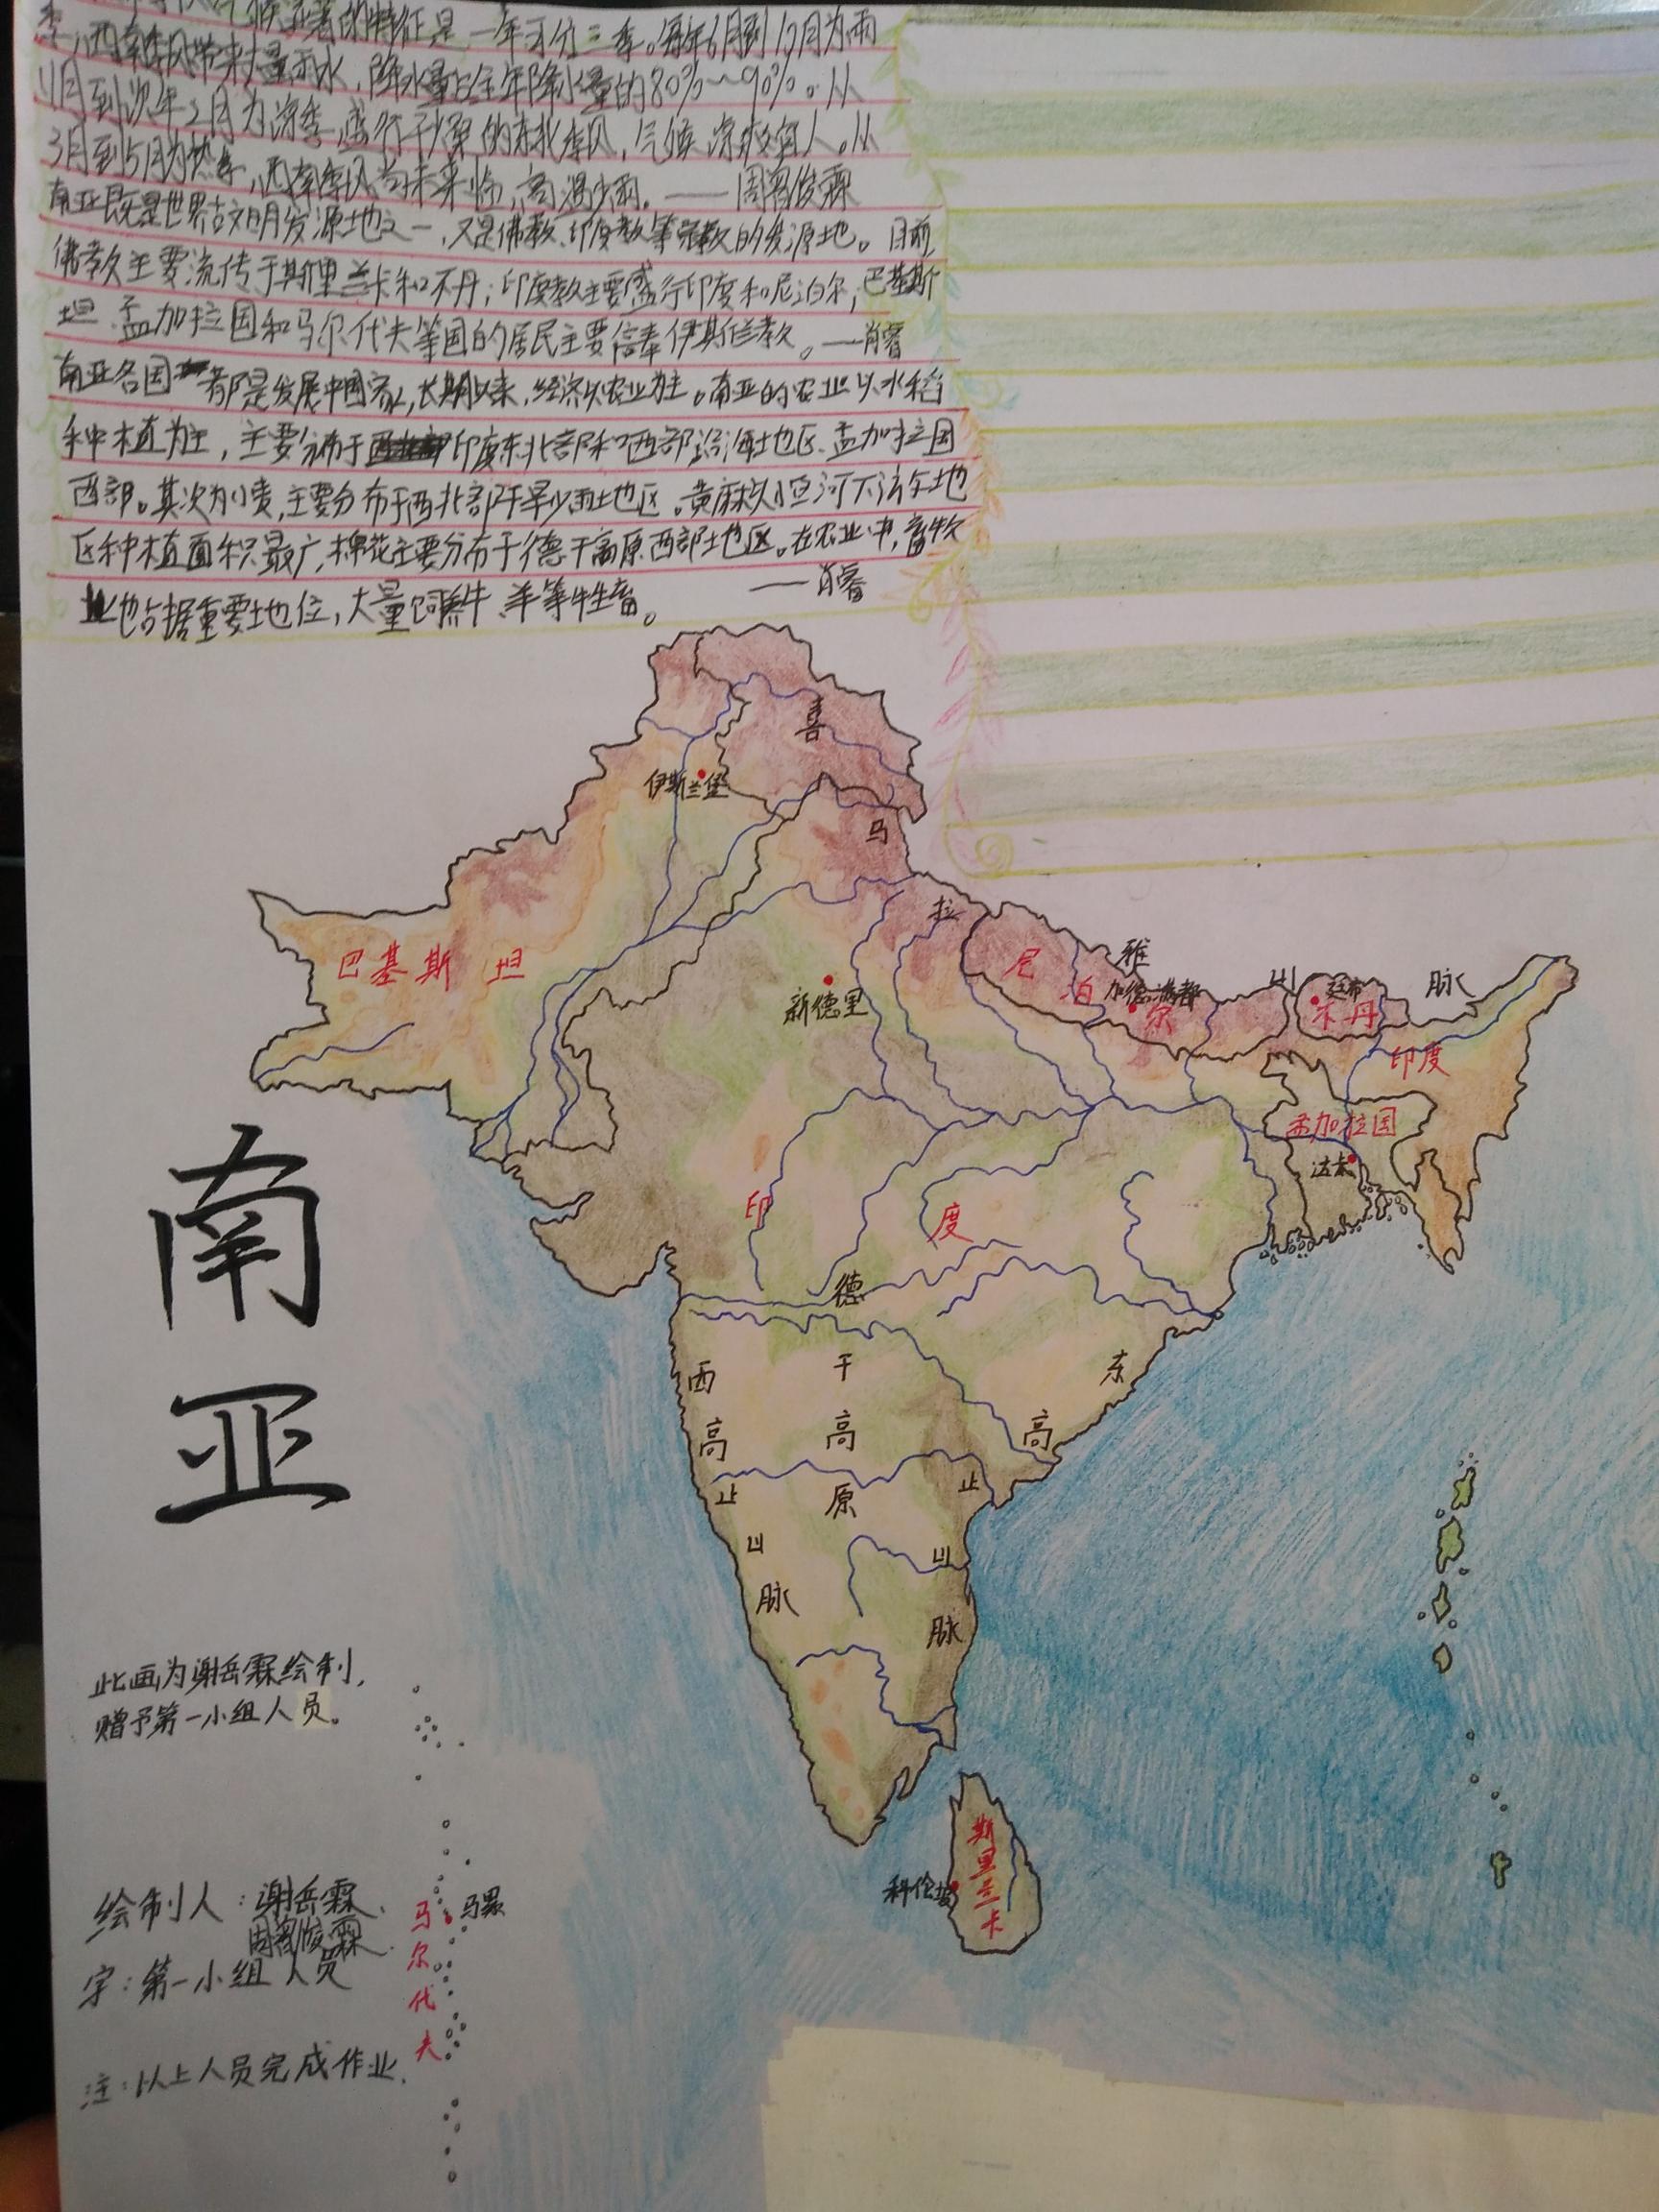 候显著的特征是一年可分三季。每年6月到10月为雨
季,西南季风带来大量雨水,降水量占全年降水量的80%~90%。从
11月到次年2月为凉季,盛行干燥的东北季风,气候凉爽宜人。从
3月到5月为热季,西南季风尚未来临,高温少雨。——周俊霖
南亚既是世界古文明发源地之一,又是佛教、印度教等宗教的发源地。目前,
佛教主要流传于斯里兰卡和不丹;印度教主要盛行印度和尼泊尔;巴基斯
坦、孟加拉国和马尔代夫等国的居民主要信奉伊斯兰教。——肖睿
南亚各国都是发展中国家,长期以来,经济以农业为主。南亚的农业以水稻
种植为主,主要分布于印度东北部和西部沿海地区、孟加拉国
西部。其次为小麦,主要分布于西北部干旱少雨地区。黄麻以恒河下游地
区种植面积最广,棉花主要分布于德干高原西部地区。在农业中,畜牧
业也占据重要地位,大量饲养牛、羊等牲畜。 ——肖睿
喜马拉雅山脉
伊斯兰堡
巴基斯坦
新德里
尼泊尔
加德满都
廷布
不丹
印度
孟加拉国
达卡
印度
德干高原
西高止山脉
东高止山脉
南亚
此画为谢岳霖绘制,
赠予第一小组人员。
斯里兰卡
科伦坡
马尔代夫
马累
绘制人:谢岳霖、
周俊霖
字:第一小组人员
注:以上人员完成作业.